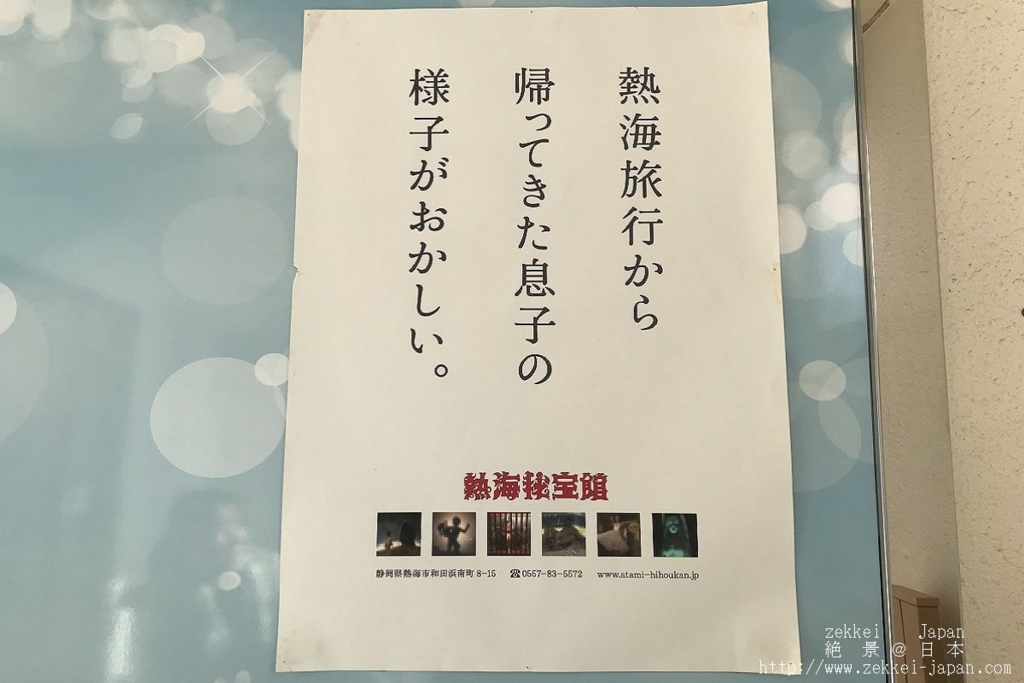 熱海旅行から
帰ってきた息子の
様子がおかしい。
熱海秘宝館
静岡県熱海市和田浜南町8-15 ☎0557-83-5572 www.atami-hihoukan.jp
zekkei Japan
絶景@日本
http://www.zekkei-japan.com/